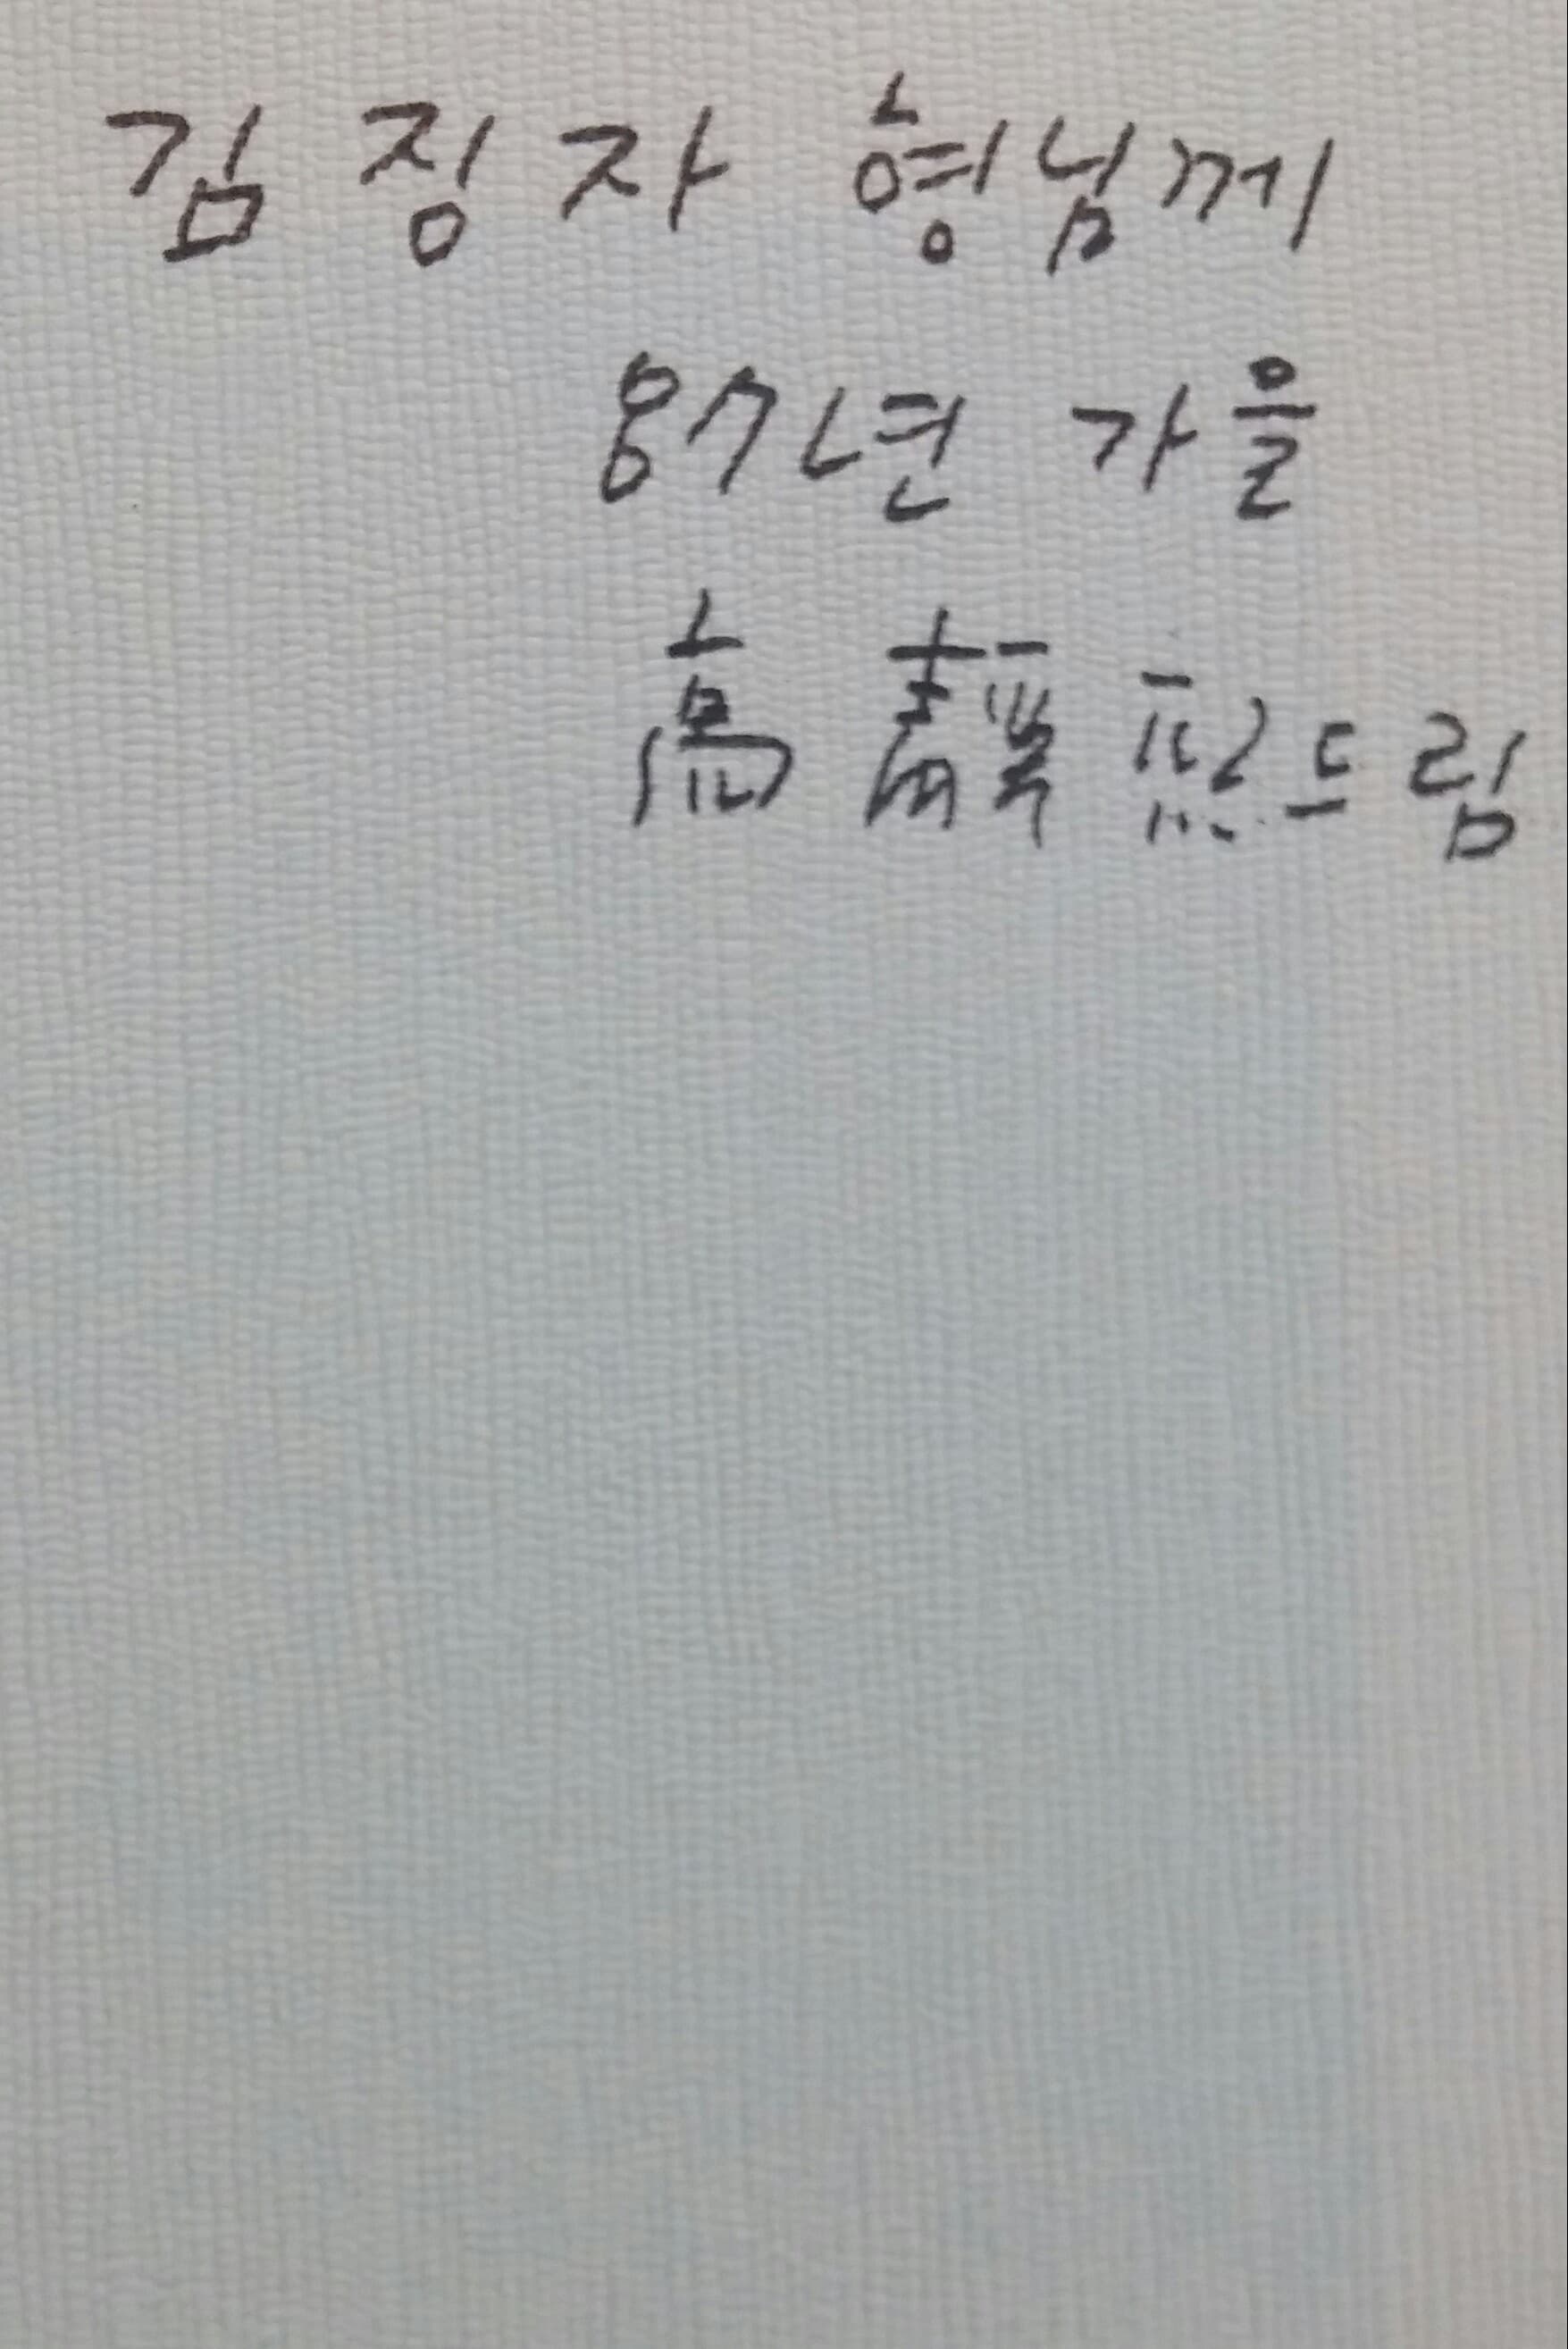 김징자 형님께
87년 가을
高靜熙 드림